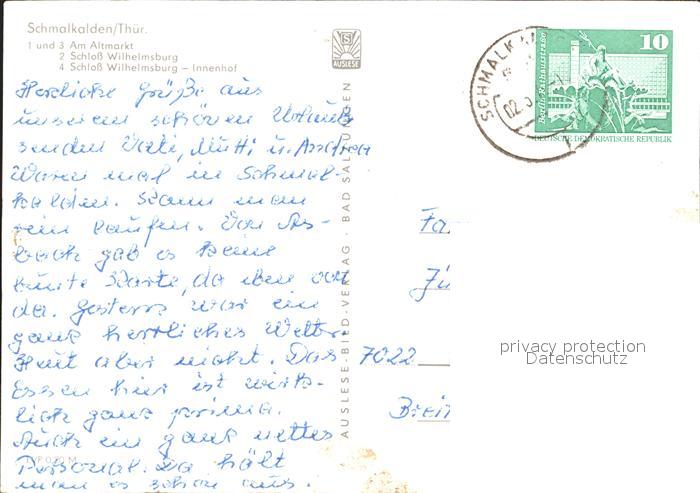 Schmalkalden/Thür.
1 und 3 Am Altmarkt
2 Schloß Wilhelmsburg
4 Schloß Wilhelmsburg – Innenhof
AUSLESE
AUSLESE-BILD-VERLAG · BAD SALZUNGEN
SCHMALK
02.
Berlin, Rathausstraße
10
DEUTSCHE DEMOKRATISCHE REPUBLIK
Herzliche Grüße aus
unserem schönen Urlaub
senden Vati, Mutti u. Andrea
Waren mal in Schmal-
kalden. Kann man
rein laufen. Von As-
bach gab es keine
bunte Karte, da eben von
da. Gestern war ein
ganz herrliches Wetter.
Heut aber nicht. Das
Essen hier ist wirk-
lich ganz prima.
Auch ein ganz nettes
Personal. Da hält
man es schon aus.
Fa
Jü
7022
Breit
privacy protection
Datenschutz